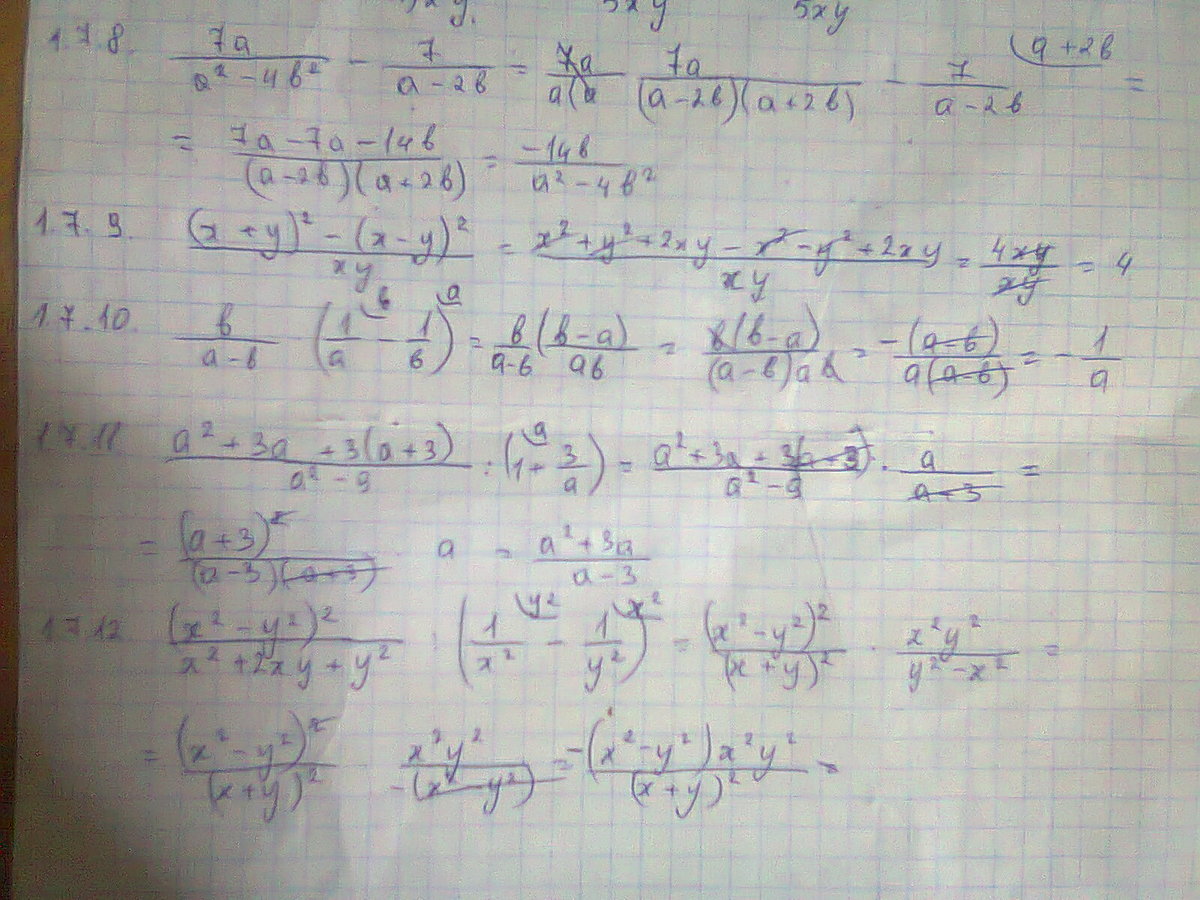 5xy 5xy
1.7.8. 7a/(a² - 4b²) - 7/(a - 2b) = 7a/(a(a 7a/((a-2b)(a+2b)) - 7/(a-2b) (a+2b =
= (7a - 7a - 14b)/((a-2b)(a+2b)) = -14b/(a² - 4b²)
1.7.9. ((x + y)² - (x - y)²)/(xy) = (x² + y² + 2xy - x² - y² + 2xy)/(xy) = 4xy/xy = 4
1.7.10. b/(a-b) (1/a (b - 1/b) (a = b/(a-b) ((b-a)/ab) = b(b-a)/((a-b)ab) = -(a-b)/(a(a-b)) = - 1/a
1.7.11 (a² + 3a + 3(a+3))/(a² - 9) : (1 (a + 3/a) = (a² + 3a + 3(a+3))/(a² - 9) · a/(a+3) =
= (a+3)²/((a-3)(a+3)) · a = (a² + 3a)/(a-3)
1.7.12 (x² - y²)²/(x² + 2xy + y²) : (1/x² (y² - 1/y²) (x² = (x² - y²)²/(x+y)² · x²y²/(y² - x²) =
= (x² - y²)²/(x+y)² x²y²/(-(x² - y²)) = -(x² - y²)x²y²/(x+y)² =